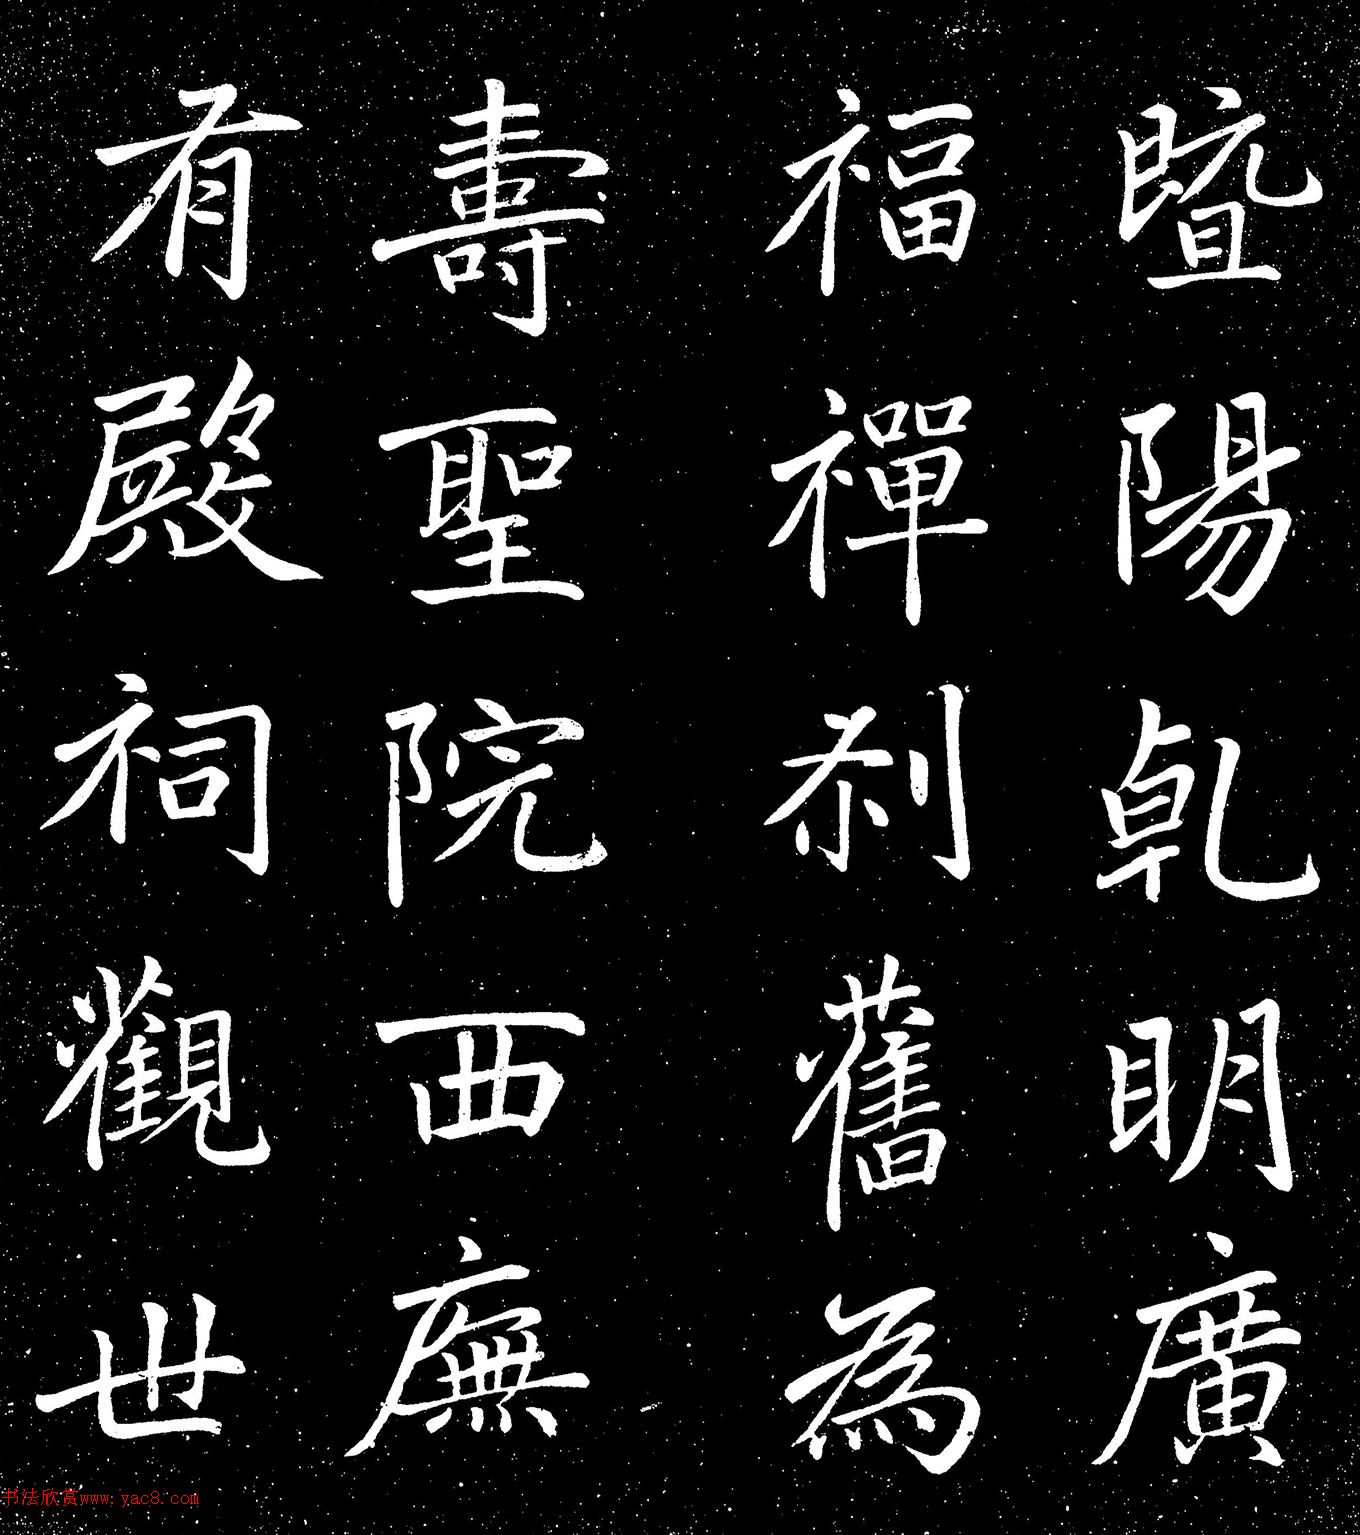 暨陽乹明廣
福禪刹舊為
壽聖院西廡
有殿祠觀世
书法欣赏www.yac8.com